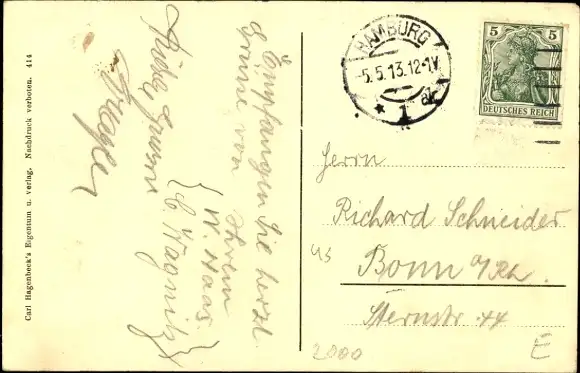 Carl Hagenbeck's Eigentum u. verlag. Nachdruck verboten. 414
Empfangen Sie herzl.
Grüsse von
Ihrem
W. Haas.
C. Wagnitz
HAMBURG
-5.5.13.12-1V.
* 1 *
5 5
DEUTSCHES REICH
Herrn
Richard Schneider
Bonn a/Rh.
Sternstr. 44
45
2000
E